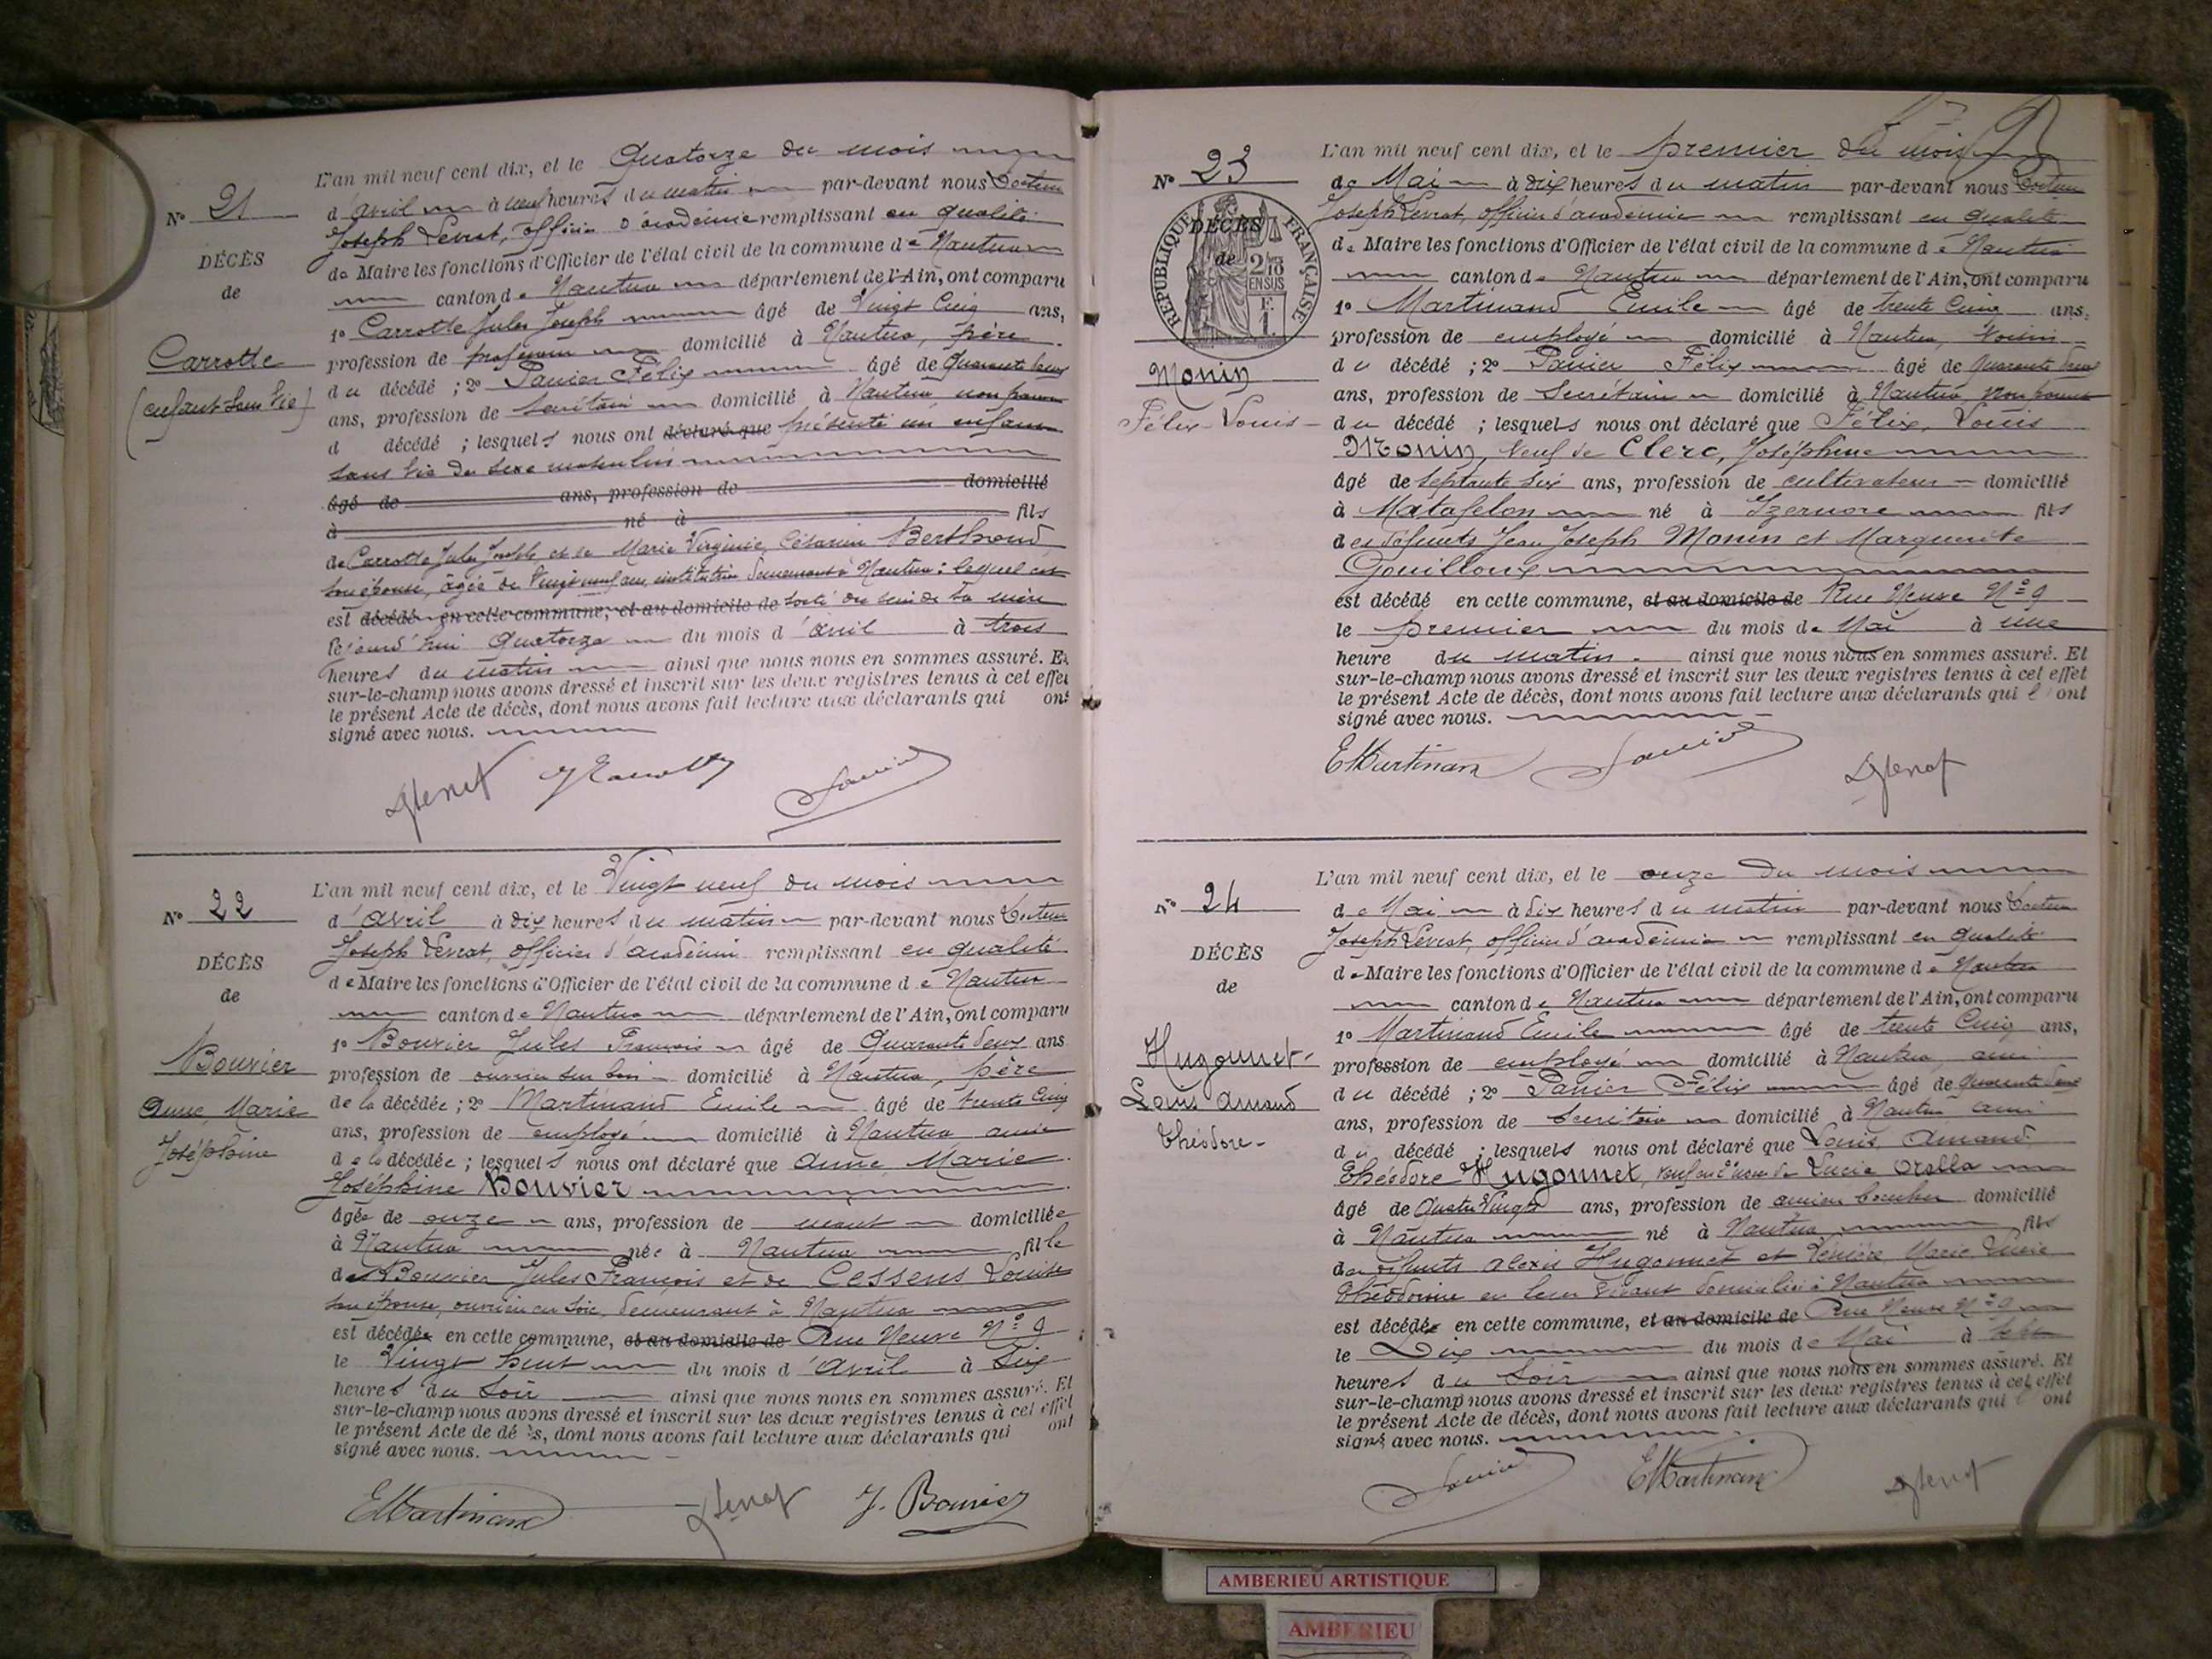 L'an mil neuf cent dix, et le Quatorze du mois
N° 21
d'avril à neuf heures du matin par-devant nous Docteur
Joseph Levrat, officier d'académie remplissant en qualité
DÉCÈS
de
de Maire les fonctions d'Officier de l'état civil de la commune de Nantua
canton de Nantua département de l'Ain, ont comparu
1° Carrotte Jules Joseph âgé de Vingt Cinq ans,
Carrotte
(enfant sans vie)
profession de professeur domicilié à Nantua, père
du décédé ; 2° Panier Félix âgé de Quarante deux
ans, profession de Secrétaire domicilié à Nantua non parent
d décédé ; lesquels nous ont déclaré que présenté un enfant
sans vie du sexe masculin
âgé de ans, profession de domicilié
à né à fils
de Carrotte Jules Joseph et de Marie Virginie, Césarine Berthoud
son épouse, âgée de Vingt neuf ans, institutrice demeurant à Nantua ; lequel est
est décédé en cette commune, et au domicile de sorti du sein de sa mère
le jourd'hui Quatorze du mois d'avril à trois
heures du matin ainsi que nous nous en sommes assuré. Et
sur-le-champ nous avons dressé et inscrit sur les deux registres tenus à cet effet
le présent Acte de décès, dont nous avons fait lecture aux déclarants qui ont
signé avec nous.
L'an mil neuf cent dix, et le Vingt neuf du mois
N° 22
d'avril à dix heures du matin par-devant nous Docteur
Joseph Levrat, officier d'académie remplissant en qualité
DÉCÈS
de
de Maire les fonctions d'Officier de l'état civil de la commune de Nantua
canton de Nantua département de l'Ain, ont comparu
1° Bouvier Jules François âgé de Quarante deux ans
Bouvier
Anne Marie
Joséphine
profession de ouvrier sur bois domicilié à Nantua, père
de la décédée ; 2° Martinand Emile âgé de trente Cinq
ans, profession de employé domicilié à Nantua ami
de la décédée ; lesquels nous ont déclaré que Anne, Marie
Joséphine Bouvier
âgée de onze ans, profession de néant domiciliée
à Nantua née à Nantua fille
de Bouvier Jules François et de Cessens Louise
son épouse, ouvrière en soie, demeurant à Nantua
est décédée en cette commune, et au domicile de Rue Neuve N° 9
le Vingt huit du mois d'avril à Six
heures du Soir ainsi que nous nous en sommes assuré. Et
sur-le-champ nous avons dressé et inscrit sur les deux registres tenus à cet effet
le présent Acte de décès, dont nous avons fait lecture aux déclarants qui ont
signé avec nous.
EMartinand
J. Bouvier
L'an mil neuf cent dix, et le premier du mois
N° 23
de Mai à dix heures du matin par-devant nous Docteur
Joseph Levrat, officier d'académie remplissant en qualité
DÉCÈS
de
RÉPUBLIQUE FRANÇAISE
2/10 EN SUS
de Maire les fonctions d'Officier de l'état civil de la commune de Nantua
canton de Nantua département de l'Ain, ont comparu
1° Martinand Emile âgé de trente Cinq ans,
profession de employé domicilié à Nantua, Voisin
Monin
Félix-Louis
du décédé ; 2° Panier Félix âgé de Quarante deux
ans, profession de Secrétaire domicilié à Nantua, non parent
du décédé ; lesquels nous ont déclaré que Félix, Louis
Monin, Veuf de Clerc, Joséphine
âgé de septante six ans, profession de cultivateur domicilié
à Matafelon né à Izernore fils
des défunts Jean Joseph Monin et Marguerite
Gouilloux
est décédé en cette commune, et au domicile de Rue Neuve N° 9
le premier du mois de Mai à une
heure du matin ainsi que nous nous en sommes assuré. Et
sur-le-champ nous avons dressé et inscrit sur les deux registres tenus à cet effet
le présent Acte de décès, dont nous avons fait lecture aux déclarants qui l'ont
signé avec nous.
EMartinand
L'an mil neuf cent dix, et le onze du mois
N° 24
de Mai à dix heures du matin par-devant nous Docteur
Joseph Levrat, officier d'académie remplissant en qualité
DÉCÈS
de
de Maire les fonctions d'Officier de l'état civil de la commune de Nantua
canton de Nantua département de l'Ain, ont comparu
1° Martinand Emile âgé de trente Cinq ans,
Hugonnet
Louis Amand
Théodore
profession de employé domicilié à Nantua ami
du décédé ; 2° Panier Félix âgé de Quarante deux
ans, profession de Secrétaire domicilié à Nantua ami
du décédé ; lesquels nous ont déclaré que Louis, Amand
Théodore Hugonnet, veuf en noces de Lucie
âgé de Quatre Vingts ans, profession de ancien domicilié
à Nantua né à Nantua fils
des défunts Alexis Hugonnet et Marie Lucie
en leur vivant domiciliés à Nantua
est décédé en cette commune, et au domicile de Rue Neuve N° 9
le Dix du mois de Mai à sept
heures du Soir ainsi que nous nous en sommes assuré. Et
sur-le-champ nous avons dressé et inscrit sur les deux registres tenus à cet effet
le présent Acte de décès, dont nous avons fait lecture aux déclarants qui l'ont
signé avec nous.
EMartinand
AMBERIEU ARTISTIQUE
AMBERIEU